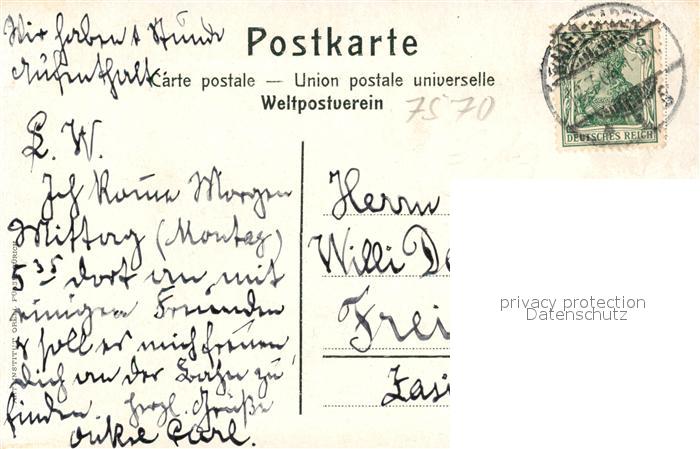 Wir haben 1 Stunde
Aufenthalt.
Postkarte
Carte postale — Union postale universelle
Weltpostverein
7570
5
DEUTSCHES REICH
L. W.
Ich komme Morgen
Mittag (Montag)
5 35 dort an, mit
einigen Freunden
soll es mich freuen,
Dich an der Bahn zu
finden. Herzl. Grüße
Onkel Carl.
Herrn
Willi De
Frei
Zasi
privacy protection
Datenschutz